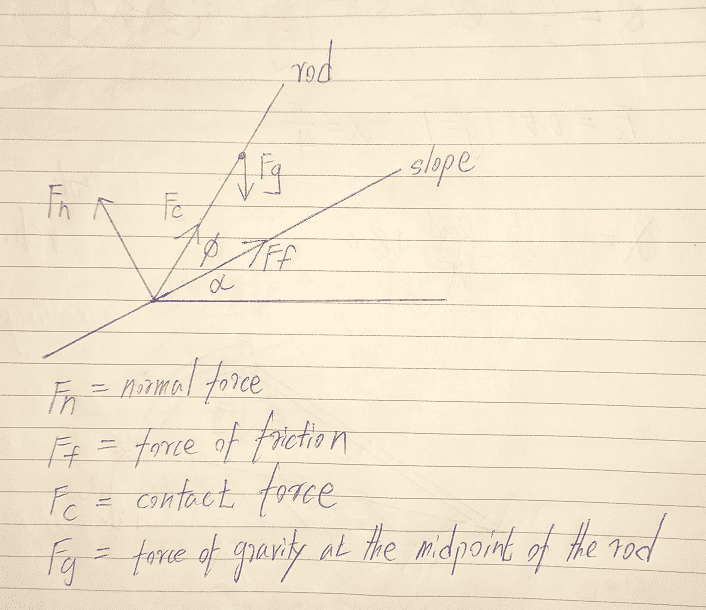 rod
slope
Fg
Fn
Fc
φ
Ff
α
Fn = normal force
Ff = force of friction
Fc = contact force
Fg = force of gravity at the midpoint of the rod